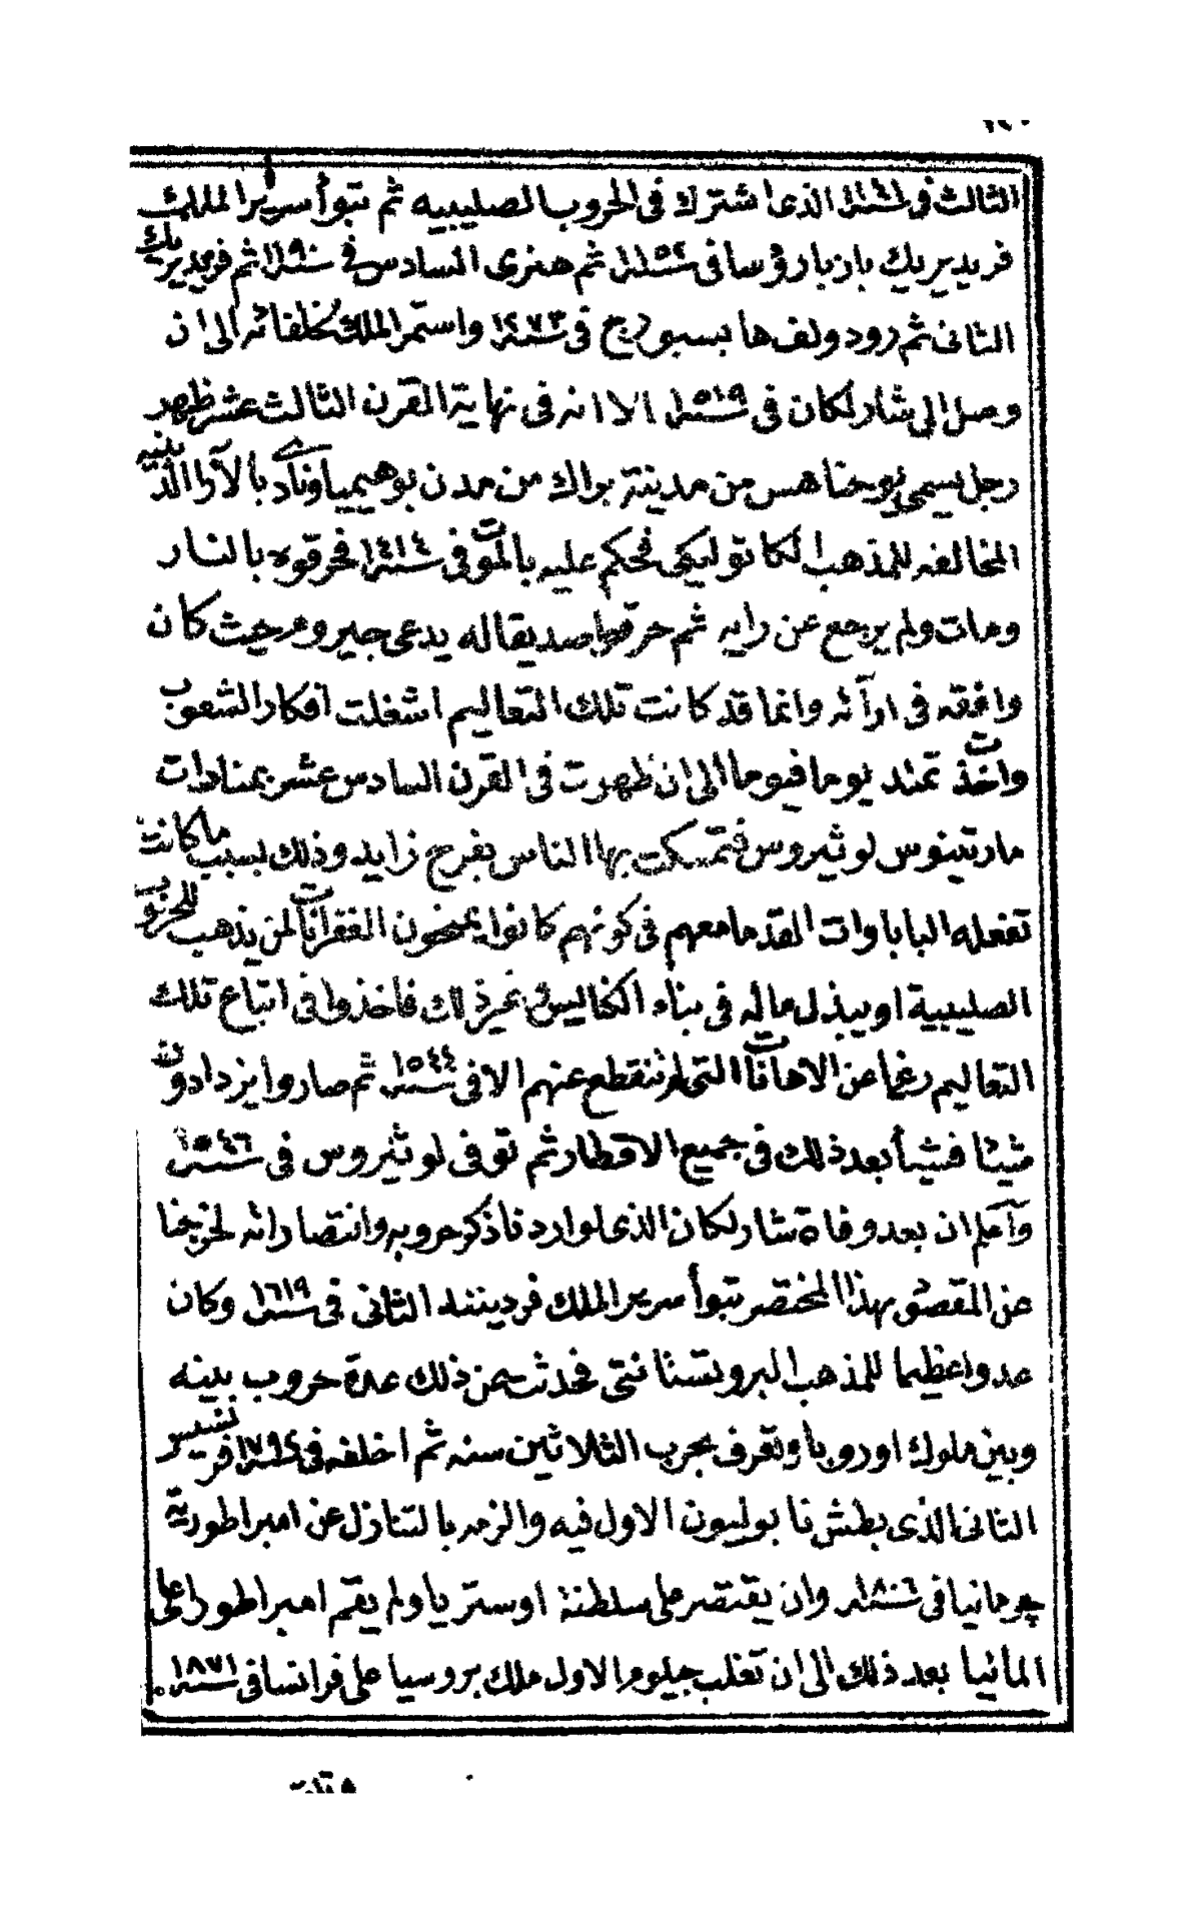 الثالث فى سنة ١١٤٦ الذى اشترك فى الحروب الصليبيه ثم تبوأ سرير الملك
فريديريك باربارؤسا فى سنة ١١٥٢ ثم هنرى السادس فى سنة ١١٩٠ ثم فريديريك
الثانى ثم رودولف هابسبورج فى سنة ١٢٧٣ واستمر الملك بخلفائه الى ان
وصل الى شارلكان فى سنة ١٥١٩ الا انه فى نهاية القرن الثالث عشر ظهر
رجل يسمى يوحنا هس من مدينة براك من مدن بوهيميا ونادى بالآرا الدينيه
المخالفه للمذهب الكاتوليكى فحكم عليه بالموت فى سنة ١٤١٤ فحرقوه بالنار
ومات ولم يرجع عن رايه ثم حرقوا صديقا له يدعى جيروم حيث كان
وافقه فى ارآئه وانما قد كانت تلك التعاليم اشغلت افكار الشعوب
واخذت تمتد يوما فيوما الى ان ظهرت فى القرن السادس عشر بمنادات
مارتينوس لوثيروس فتمسكت بها الناس بفرح زايد وذلك بسبب ما كانت
تفعله الباباوات القدما معهم فى كونهم كانوا يمنحون الغفرانات لمن يذهب للحروب
الصليبية او يبذل ماله فى بناء الكنائس وغير ذلك فاخذوا فى اتباع تلك
التعاليم رغما عن الاهانات التى لم تنقطع عنهم الا فى سنة ١٥٤٤ ثم صاروا يزدادون
شيئا فشيأ بعد ذلك فى جميع الاقطار ثم توفى لوثيروس فى سنة ١٥٤٦
وآعلم ان بعد وفاة شارلكان الذى لو اردنا ذكر حروبه وانتصاراته لخرجنا
عن المقصود بهذا المختصر تبوأ سرير الملك فردينند الثانى فى سنة ١٦١٩ وكان
عدوا عظيما للمذهب البروتستانتى فحدثت من ذلك عدة حروب بينه
وبين ملوك اوروبا وتعرف بحرب الثلاثين سنه ثم اخلفه فى سنة ١٧٩٢ فرنسيس
الثانى الذى بطش نابوليون الاول فيه والزمه بالتنازل عن امبراطورية
جرمانيا فى سنة ١٨٠٦ وان يقتصر على سلطنة اوستريا ولم يقم امبراطورا على
المانيا بعد ذلك الى ان تغلب جليوم الاول ملك بروسيا على فرانسا فى سنة ١٨٧١